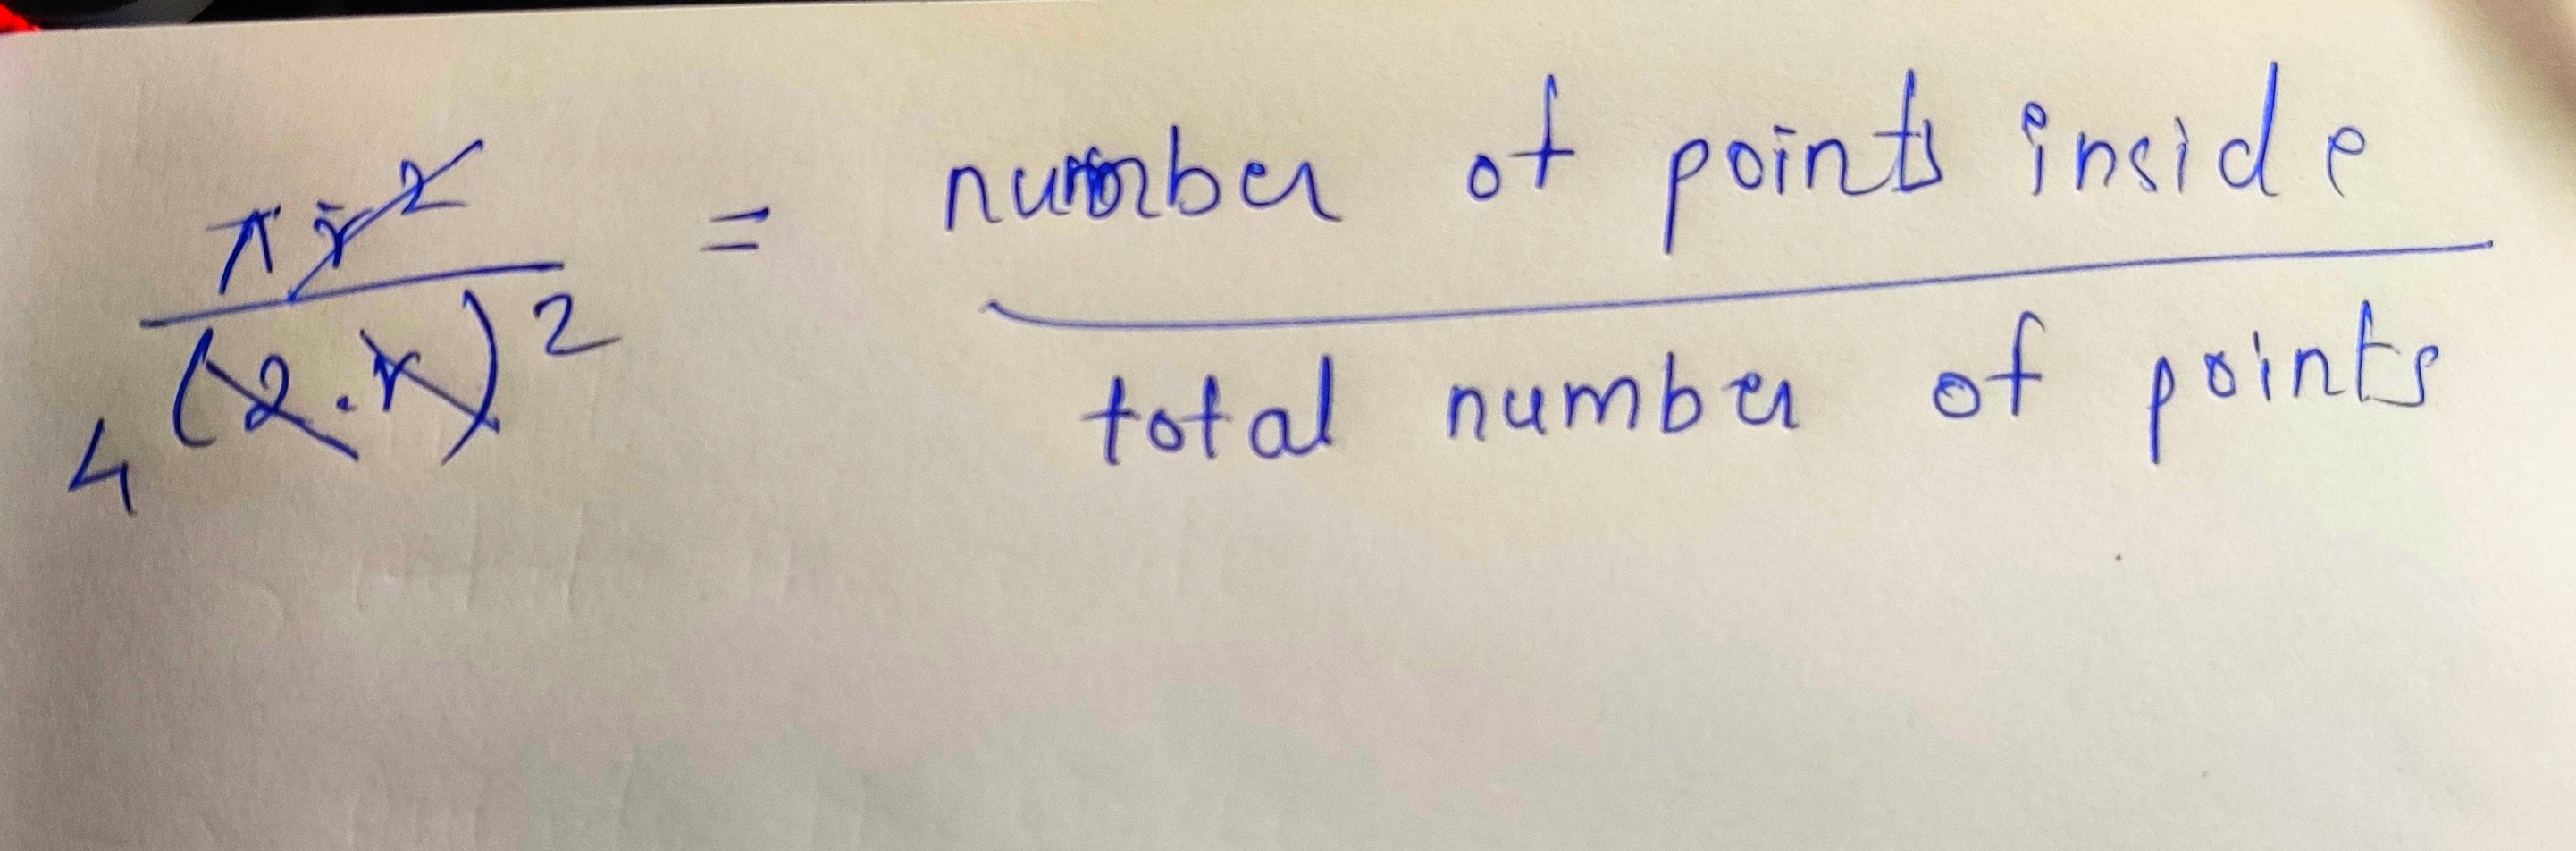 πr² = number of points inside
4 (2.r)² total number of points